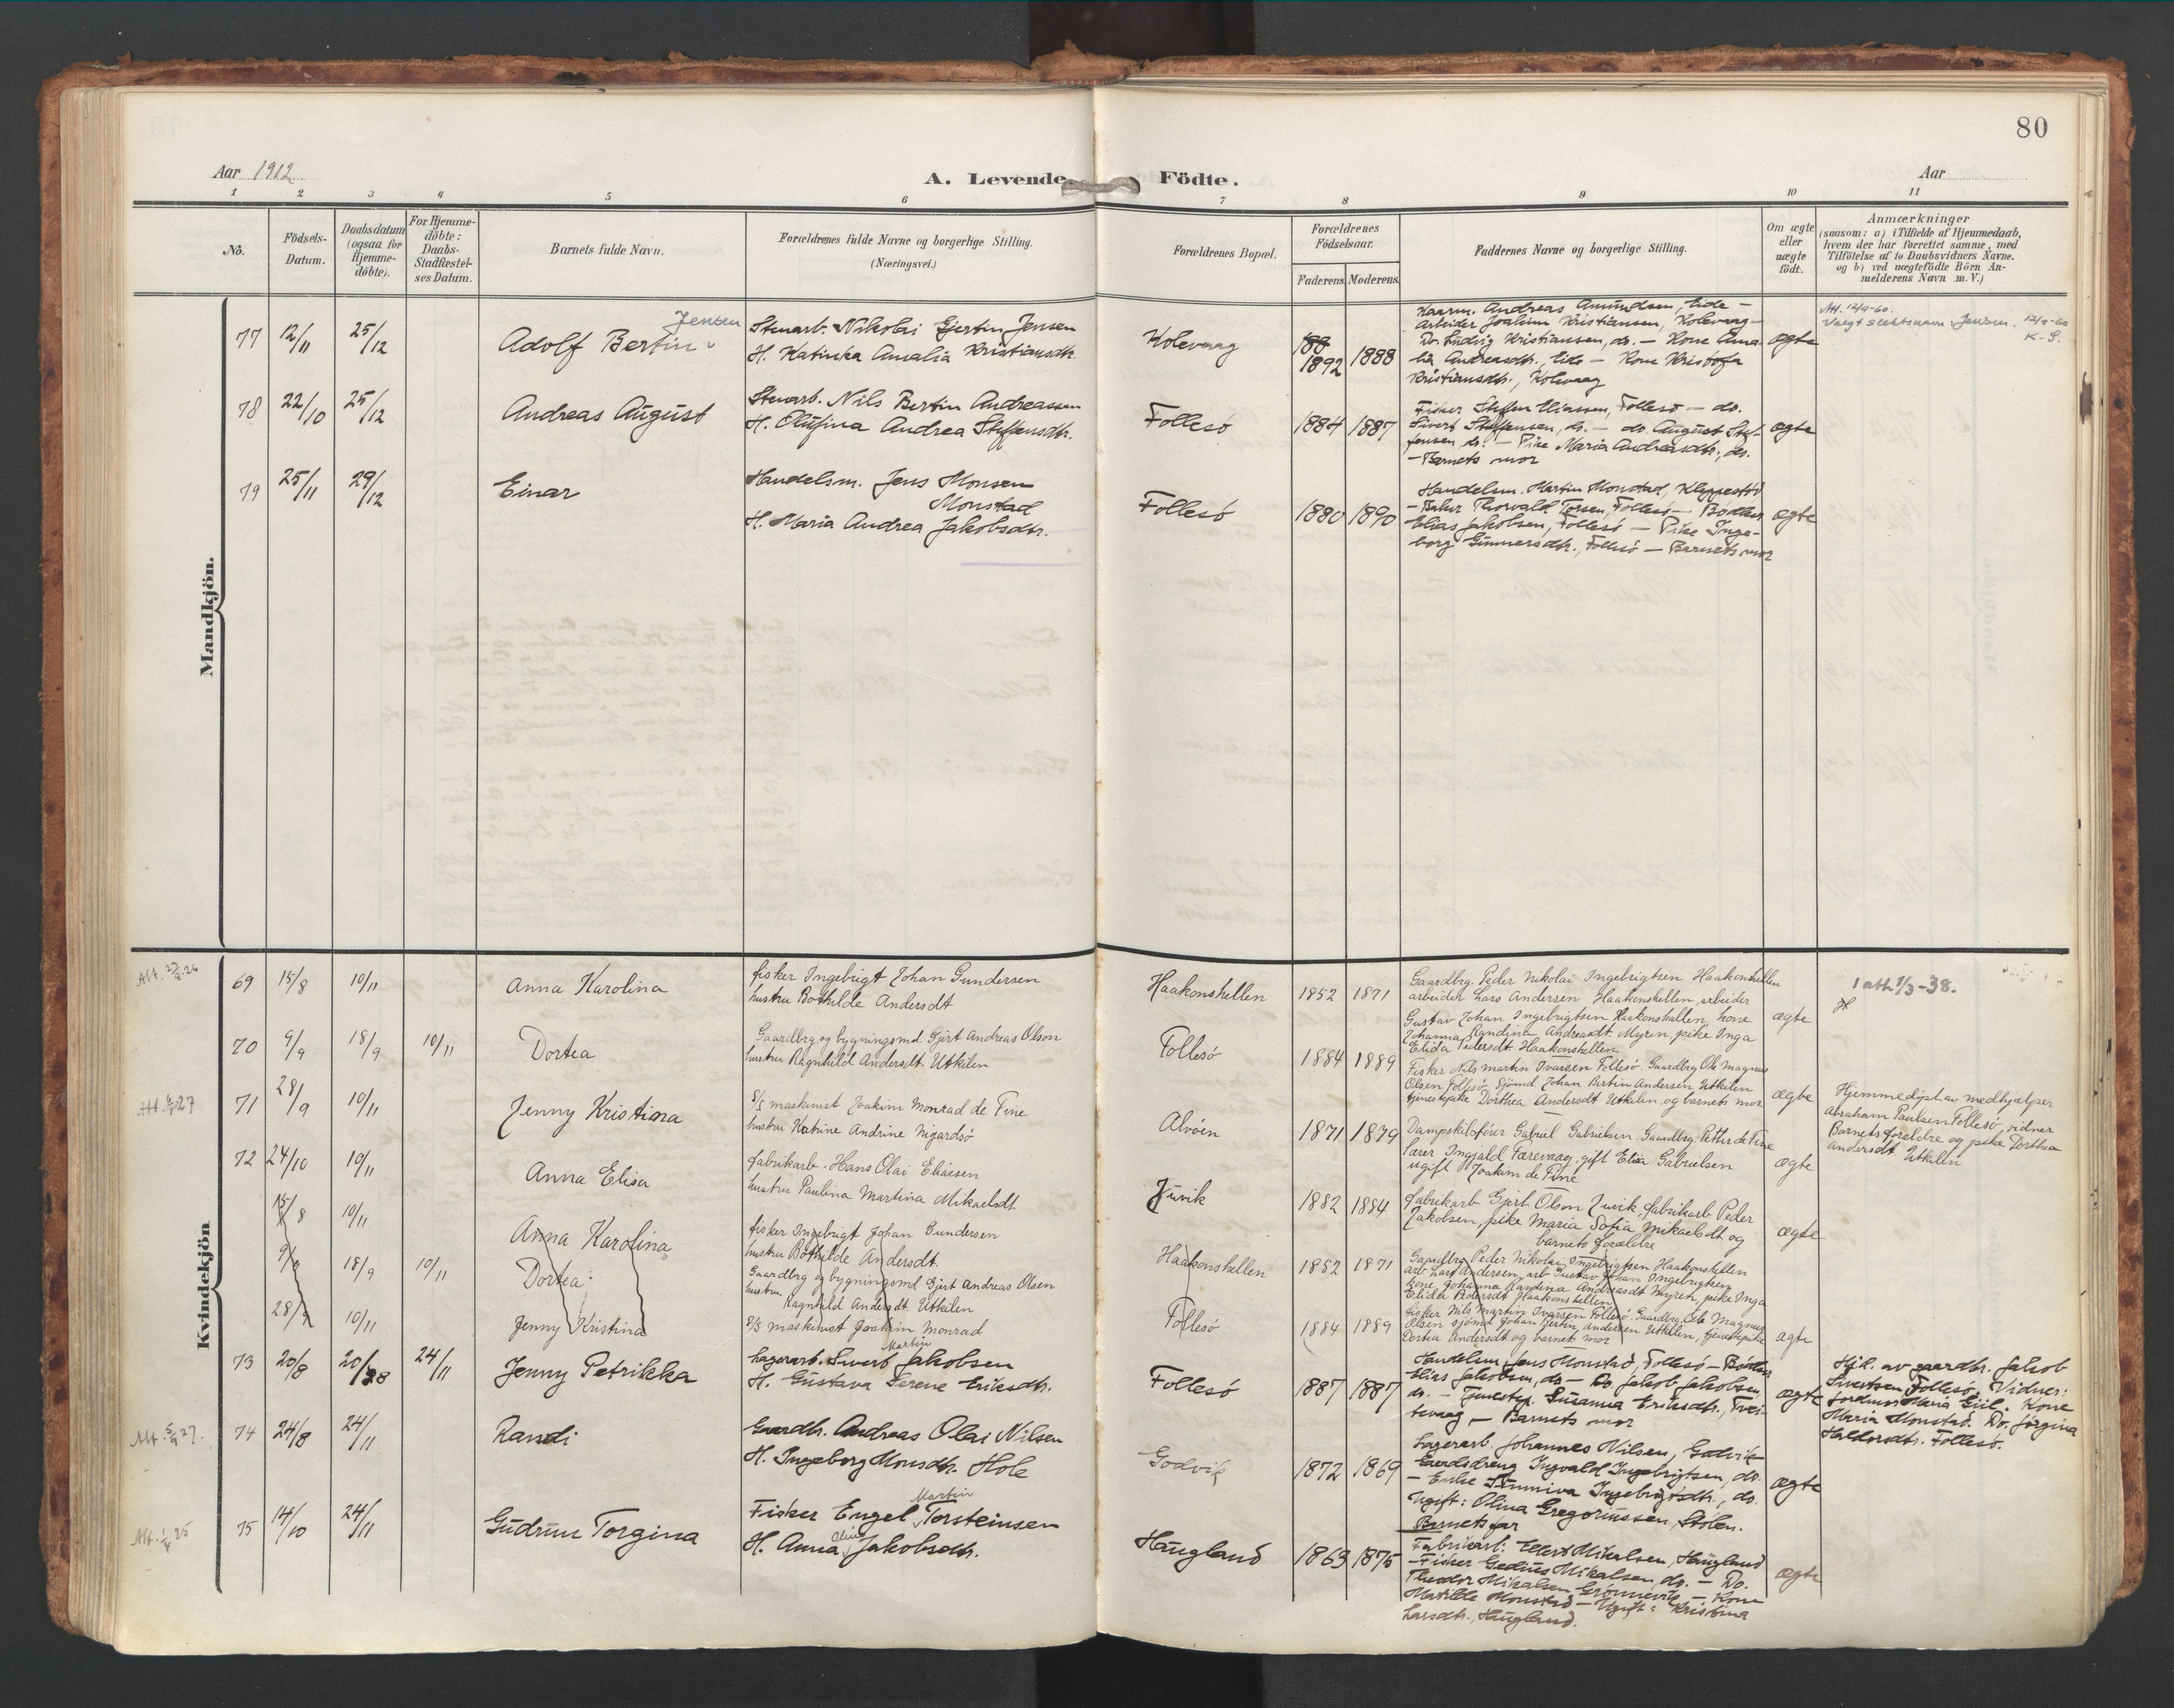 80
Aar 1912
A. Levende
Födte.
Aar
1 2 3 4 5 6 7 8 9 10 11
No.
Födsels-
Datum.
Daabsdatum
(ogsaa for
Hjemme-
döbte).
For Hjemme-
döbte:
Daabs-
Stadfæstel-
ses Datum.
Barnets fulde Navn.
Forældrenes fulde Navne og borgerlige Stilling.
(Næringsvei.)
Forældrenes Bopæl.
Forældrenes
Födselsaar.
Faderens. Moderens.
Faddernes Navne og borgerlige Stilling.
Om ægte
eller
uægte
födt.
Anmærkninger
(saasom: a) i Tilfælde af Hjemmedaab,
hvem der har forrettet samme, med
Tilföielse af to Daabsvidners Navne.
og b) ved uægtefödte Börn An-
melderens Navn m. V.)
Mandkjön.
77 12/11 25/12
Adolf Bertin Jensen
Stenarb. Nikolai Gjertin Jensen
H. Katinka Amalia Kristiansdtr.
Kolevaag
188
1892 1888
Kaarm. Andreas Amundsen, Eide –
Arbeider Joakim Kristiansen, Kolevaag –
Do. Ludvig Kristiansen, do. – Kone Ama-
lia Andreasdtr. Eide – Kone Kristofa
Kristiansdtr., Kolevaag
ægte
Att. 12/9-60.
Valgt slektsnavn Jensen. 12/9-60
K. S.
78 22/10 25/12
Andreas August
Stenarb. Nils Bertin Andreassen
H. Olufina Andrea Steffensdtr.
Follesö
1884 1887
Fisker Steffen Eliassen, Follesö – do.
Sivert Steffensen, do. – do. August Stef-
fensen, do. – Pike Maria Andreasdtr., do.
– Barnets mor
ægte
79 25/11 29/12
Einar
Handelsm. Jens Monsen
Monstad
H. Maria Andrea Jakobsdtr.
Follesö
1880 1890
Handelsm. Martin Monstad, Kleppestö
– Baker Thorvald Torsen, Follesö – Bödker
Elias Jakobsen, Follesö – Pike Inge-
borg Gunnersdtr., Follesö – Barnets mor
ægte
Kvindekjön
69 15/8 10/11
Anna Karolina
fisker Ingebrigt Johan Gundersen
hustru Bothilde Andersdt
Haakonshellen
1852 1871
Gaardbrg. Peder Nikolai Ingebrigtsen Haakonshellen
arbeider Lars Andersen Haakonshellen, arbeider
Gustav Johan Ingebrigtsen Haakonshellen, kone
Johanna Randina Andreasdt Myren, pike Inga
Elida Pedersdt Haakonshellen
ægte
1 att. 1/3-38.
70 9/9 18/9 10/11
Dortea
Gaardbrg og bygningsmd Gjert Andreas Olson
hustru Ragnhild Andersdt. Utkilen
Follesö
1884 1889
Fisker Nils Martin Ivarsen Follesö. Gaardbrg Ole Magnus
Olsen Follesö, Sjömd Johan Bertin Andersen Utkilen
tjenestepike Dorthea Andersdt Utkilen og barnets mor
ægte
Hjemmedöpt av medhjælper
Abraham Paulsen Follesö, vidner
Barnets forældre og pike Dorthea
Andersdt Utkilen
71 28/9 10/11
Jenny Kristina
D/S maskinist Joakim Monrad de Fine
hustru Katrine Andrine Nigardsö
Alvöen
1871 1879
Dampskibsförer Gabriel Gabrielsen. Gaardbrg. Petter de Fine
Lærer Ingjald Færevaag, gift Elia Gabrielsen
ugift Joakim de Fine
ægte
72 24/10 10/11
Anna Elisa
fabrikarb. Hans Olai Eliasen
hustru Paulina Martina Mikaelsdt
Juvik
1882 1884
fabrikarb Gjert Olson Juvik, fabrikarb Peder
Jakobsen, pike Maria Sofia Mikaelsdt og
barnets forældre
ægte
15/8 10/11
Anna Karolina
fisker Ingebrigt Johan Gundersen
hustru Bothilde Andersdt.
Haakonshellen
1852 1871
Gaardbrg Peder Nikolai Ingebrigtsen Haakonshellen
arb Lars Andersen, arb Gustav Johan Ingebrigtsen
kone Johanna Randina Andreasdt Myren, pike Inga
Elida Pedersdt Haakonshellen
9/9 18/9 10/11
Dortea
Gaardbrg og bygningsmd Gjert Andreas Olsen
hustru Ragnhild Andersdt Utkilen
Follesö
1884 1889
fisker Nils Martin Ivarsen Follesö. Gaardbrg Ole Magnus
Olsen sjömd Johan Bertin Andersen Utkilen, tjenestepike
Dortea Andersdt og barnets mor
ægte
28/9 10/11
Jenny Kristina
D/S maskinist Joakim Monrad
73 20/8 20/8 24/11
Jenny Petrikka
Lagerarb. Sivert Martin Jakobsen
H. Gustava Serene Eriksdtr.
Follesö
1887 1887
Handelsm. Jens Monstad, Follesö – Bödker
Elias Jakobsen, do – Do Jakob Jakobsen,
do. – Tjenestep. Susanna Eriksdtr., Tvei-
tevaag – Barnets mor
ægte
Hjd. av gaardbr. Jakob
Sivertsen Follesö. Vidner:
Jordmor Maria Giil. Kone
Maria Monstad. Do. Jörgina
Haldorsdtr. Follesö.
74 24/8 24/11
Randi
Gaardbr. Andreas Olai Nilsen
H. Ingeborg Monsdtr. Hole
Godvik
1872 1869
Lagerarb. Johannes Nilsen, Godvik –
Gaardsdreng Ingvald Ingebrigtsen, do.
– Enke Sunniva Ingebrigtsdtr., do.
Ugift: Olina Gregoriussen, Stölen.
Barnets far
ægte
75 14/10 24/11
Gudrun Torgina
Fisker Engel Martin Torsteinsen
H. Anna Olina Jakobsdtr.
Haugland
1863 1875
Fabrikarb: Ellert Mikalsen, Haugland
– Fisker Gedius Mikalsen, do. – Do.
Theodor Mikalsen Grönnevik – Kone
Matilde Monstad – Ugift: Kristina
Larsdtr., Haugland.
ægte